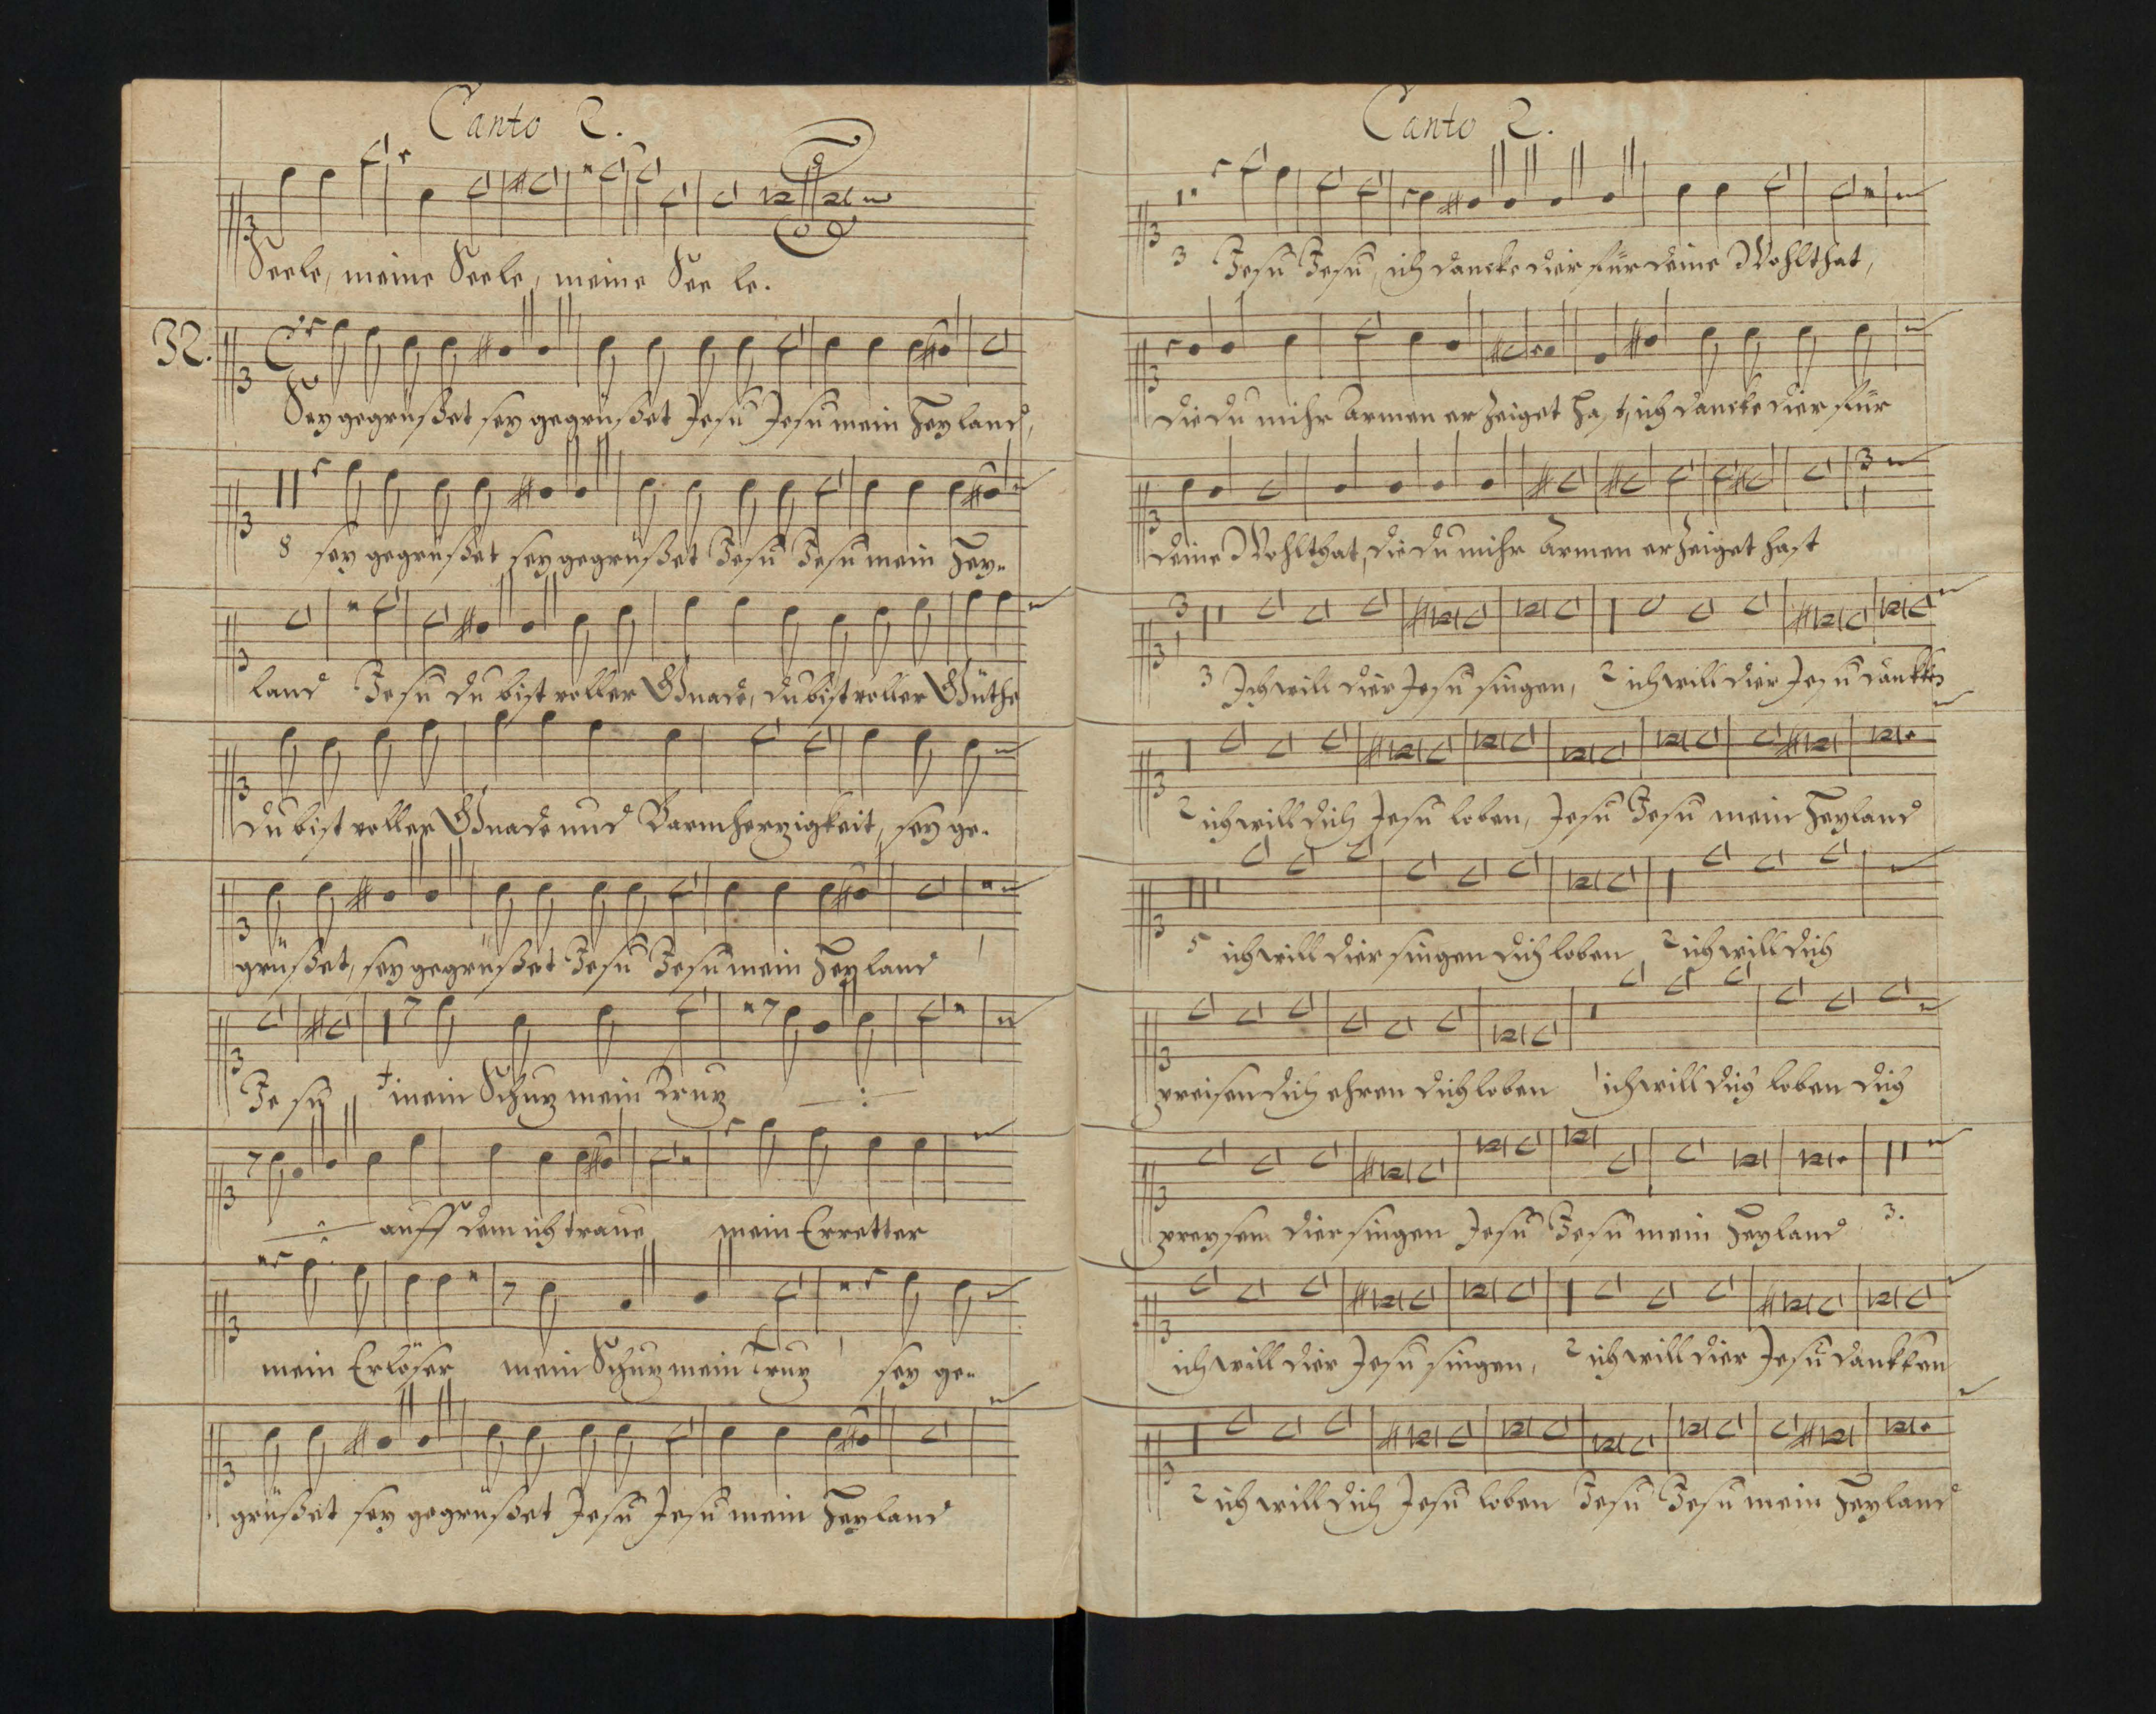 Canto 2.
Seele, meine Seele, meine See le.
32.
Sey gegrüßet sey gegrüßet Jesu Jesu mein Heyland,
8 sey gegrüßet sey gegrüßet Jesu Jesu mein Hey-
land Jesu du bist voller Gnade, du bist voller Güthe
du bist voller Gnade und Barmherzigkeit, sey ge-
grüßet, sey gegrüßet Jesu Jesu mein Heyland
Je su mein Schuz mein Truz :
: auff dem ich traue mein Erretter
mein Erlöser mein Schuz mein Truz sey ge-
grüßet sey gegrüßet Jesu Jesu mein Heyland
Canto 2.
3 Jesu Jesu, ich dancke dier für deine Wohlthat,
die du mihr Armen erzeiget hast, ich dancke dier für
deine Wohlthat, die du mihr Armen erzeiget hast
3 Ich will dier Jesu singen, 2 ich will dier Jesu dankken
2 ich will dich Jesu loben, Jesu Jesu mein Heyland
5 ich will dier singen dich loben 2 ich will dich
preisen dich ehren dich loben 1 ich will dich loben dich
preysen dier singen Jesu Jesu mein Heyland 3.
ich will dier Jesu singen, 2 ich will dier Jesu dankken
2 ich will dich Jesu loben Jesu Jesu mein Heyland